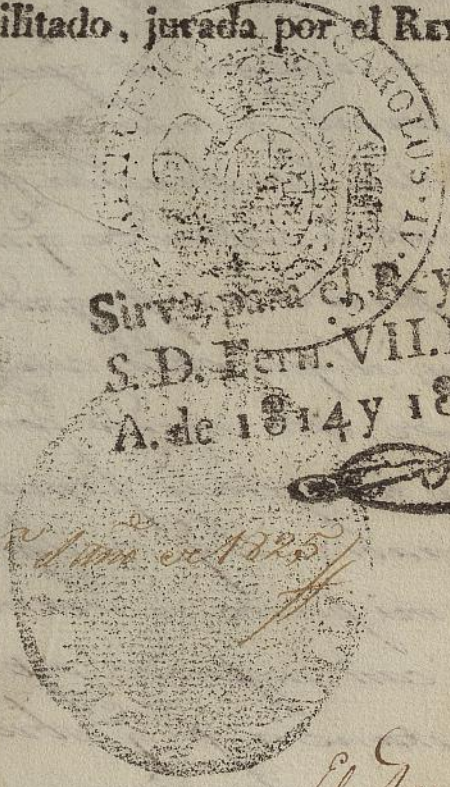 ilitado, jurada por el REY
CAROLUS · IV ·
Sirva para el Rey
S. D. Fern. VII.
A. de 1814 y 18
el año de 1825
El